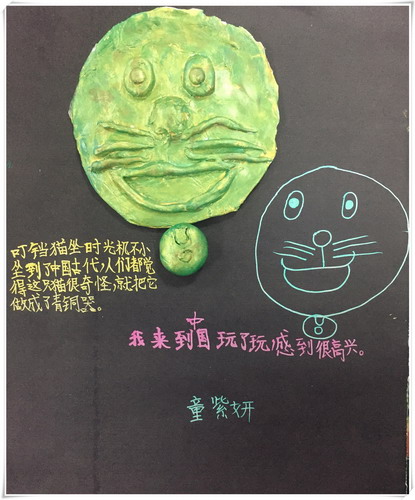 叮铛猫坐时光机不小
坐到了中国古代,人们都觉
得这只猫很奇怪,就把它
做成了青铜器。
我来到中国玩了玩,感到很高兴。
童紫妍